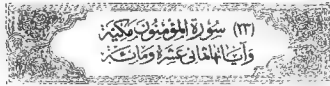 (٢٣) سُورَةُ المُؤْمِنُونَ مَكِّيَّة
وَآيَاتُهَا ثَمَانِي عَشَرَة وَمَائَة